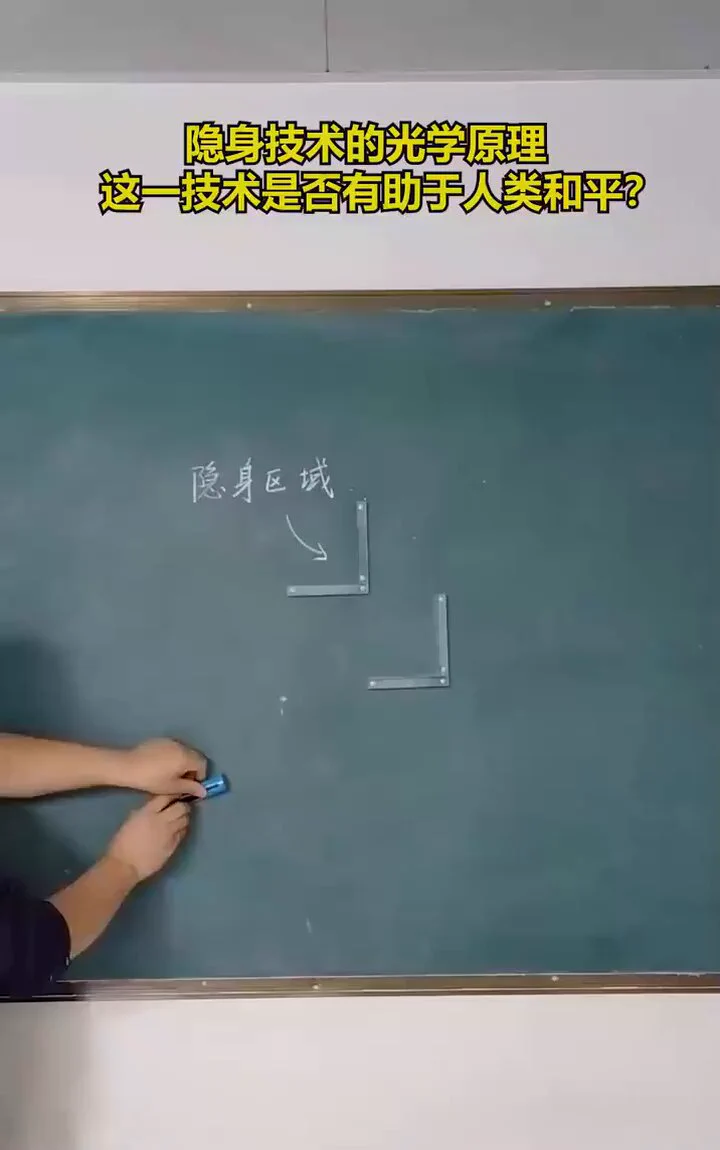 隐身技术的光学原理
这一技术是否有助于人类和平？
隐身区域